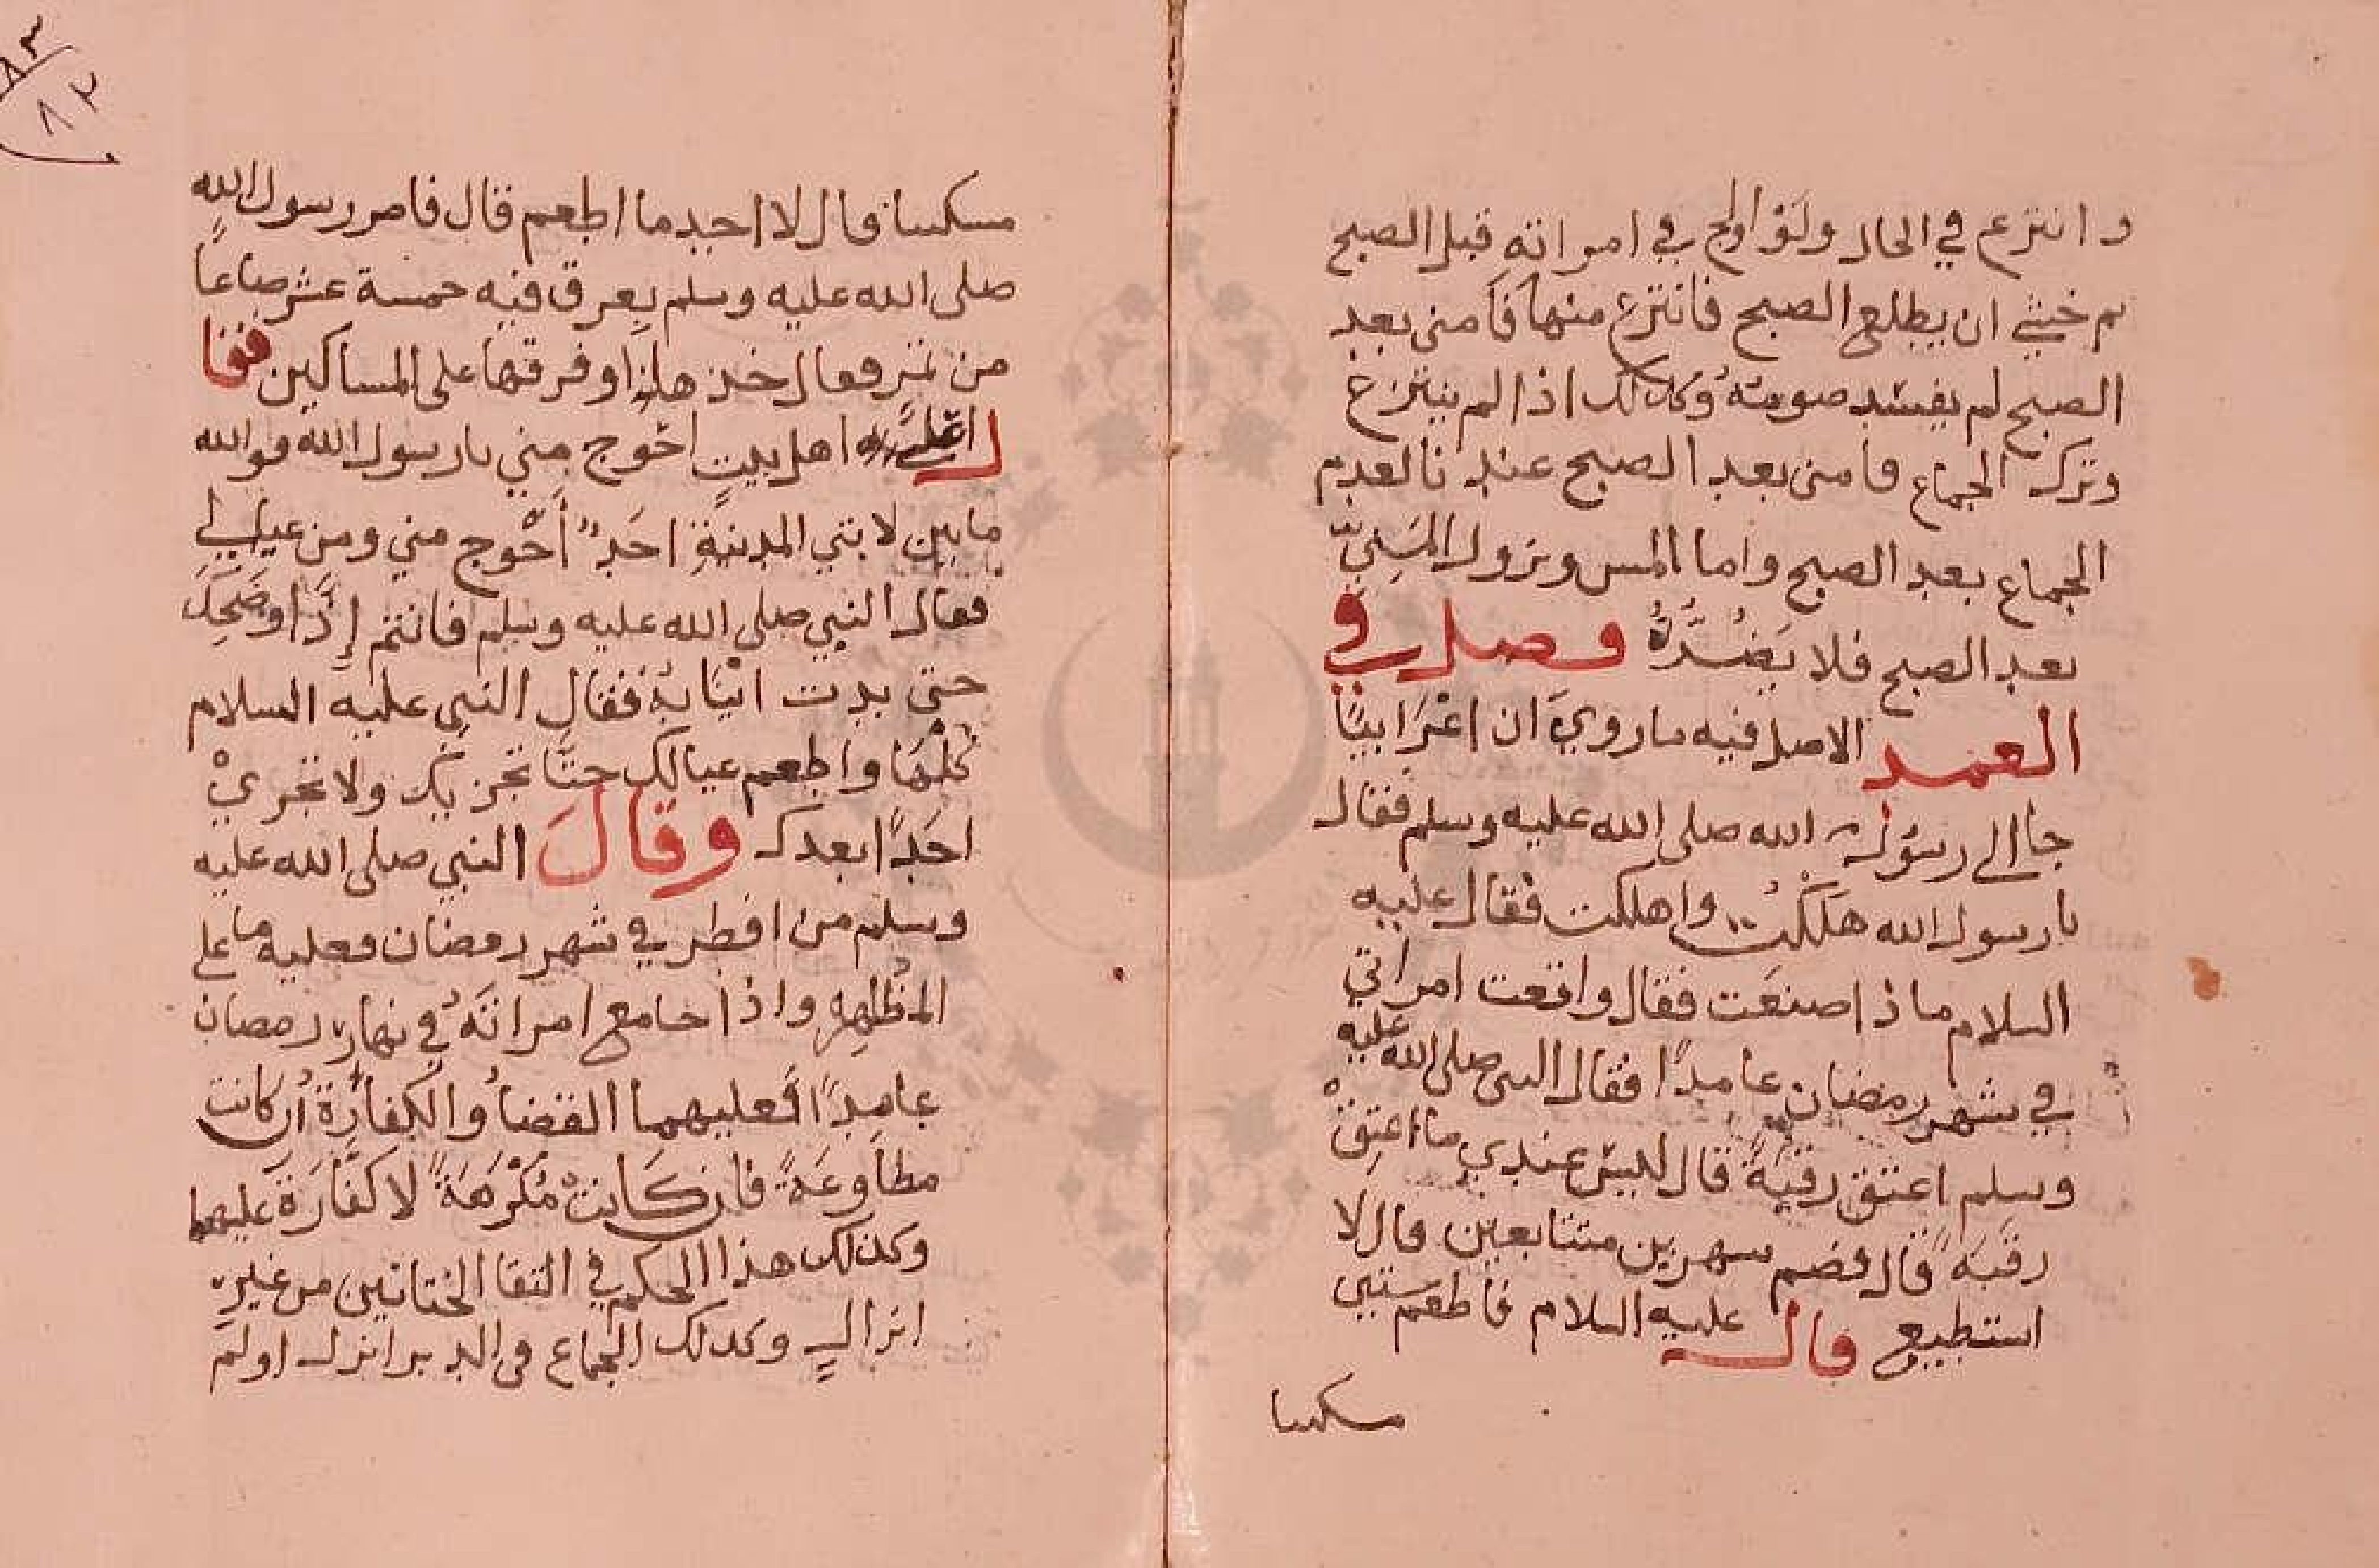 وانتزع في الحال ولَوْ اولج في امراته قبل الصبح
ثم خشي ان يطلع الصبح فانتزع منها فامنى بعد
الصبح لم يفسد صومه وكذلك اذا لم ينتزع
وترك الجماع فامنى بعد الصبح عندنا لعدم
الجماع بعد الصبح واما المس ونزول المَنِيّ
بعد الصبح فلا يَضُرُّهُ فصل في
العمد الاصل فيه ما رويَ ان اعْرَابيًا
جا الى رسول الله صلى الله عليه وسلم فقال
يا رسول الله هَلَكْتُ واهلكت فقال عليه
السلام ماذا صنعَت فقال واقعت امراتي
في شهر رمضان عامدًا فقال النبى صلى الله عليه
وسلم اعتق رقبَةً قال ليس عندي ما اعتِقْ
رقبَة قال فصم شهرين متتابعين قال لا
استطيع قال عليه السلام فاطعم ستين
مسكينا
٨٣
٨٣
مسكينا قال لا اجد ما اطعم قال فامر رسول الله
صلى الله عليه وسلم بعرق فيه خمسة عشر صاعاً
من تمر فقال خذ هذا وفرقها على المساكين فقا
ل اعلى اهل بيتٍ احْوج مني يا رسول الله فوالله
ما بين لابتي المدينةِ احَدٌ أَحْوج مني ومن عيالي
فقال النبي صلى الله عليه وسلم فانتم إِذًا وضَحِكَ
حتى بدت انيَابُهُ فقال النبي عليه السلام
كُلْهَا واطعم عيالك حتَّا تجزيك ولا تجزيْ
احَدًا بعدك وقالَ النبي صلى الله عليه
وسلم من افطر في شهر رمضان فعليه ما على
المُظَاهِرِ واذا جامع امراتَهُ في نهار رمضان
عامِدًا فعليهما القضاُ والكفارَةُ ان كانت
مطاوعَةً فان كَانتْ مُكْرَهَةً لا كفَّارَةَ عليها
وكذلك هذا الحكم في التقا الختانين من غير
انزالٍ وكذلك الجماع فى الدبر انزل اولم